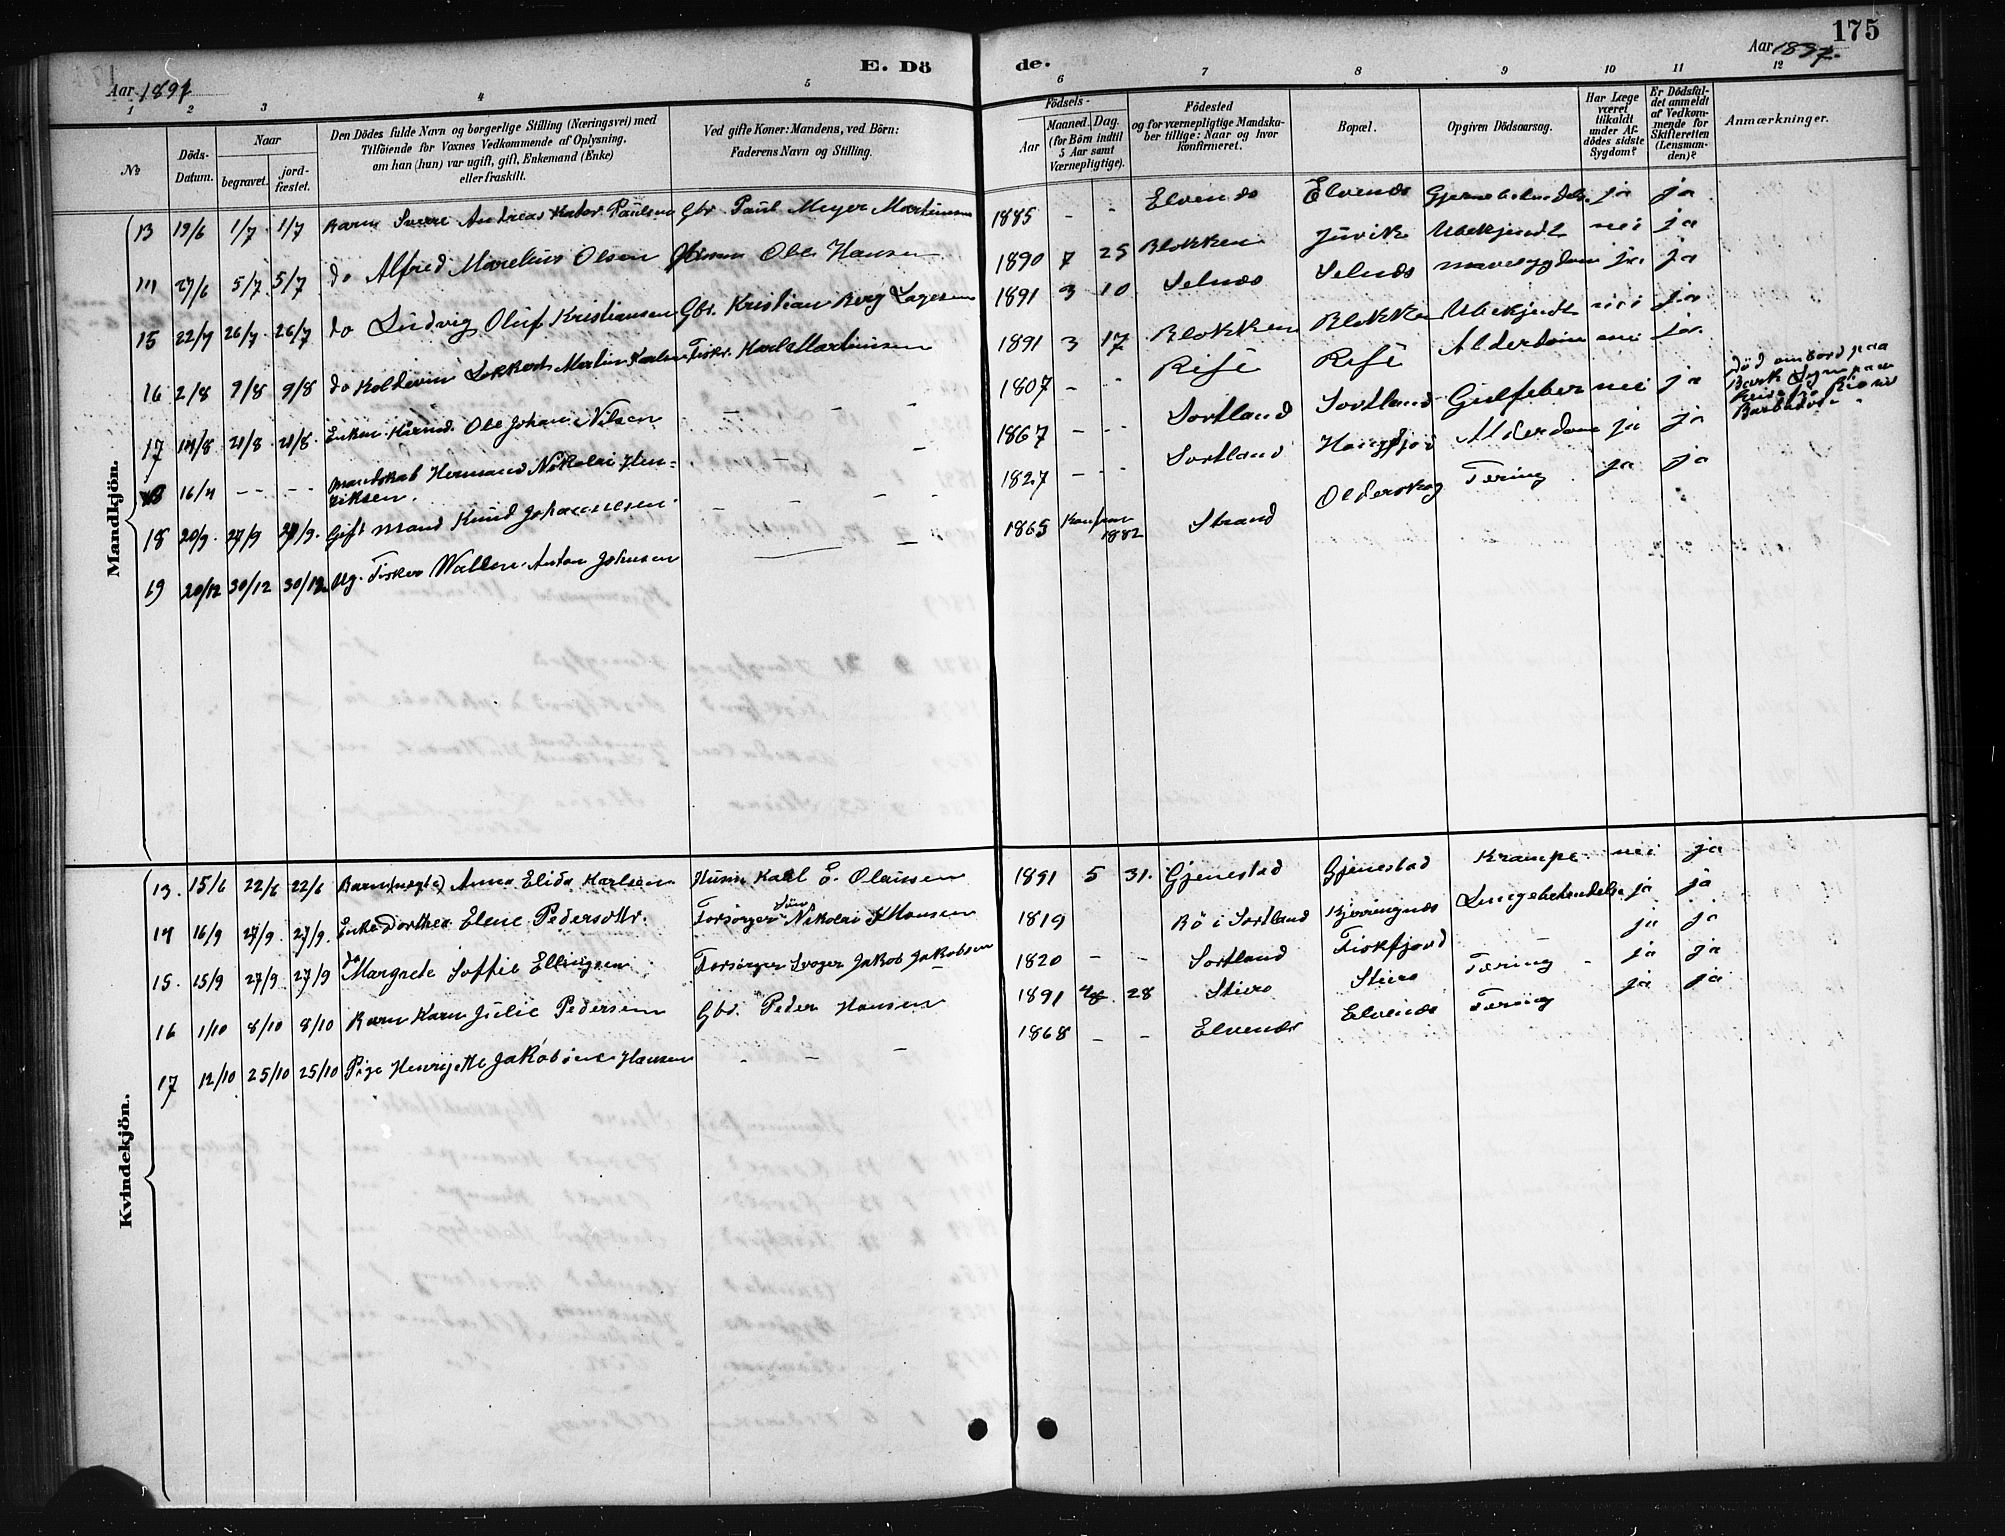 175
Aar 1891
E. Dö
de.
Aar 1891.
1 2 3 4 5 6 7 8 9 10 11 12
No
Döds-Datum.
Naar
begravet.
jordfæstet.
Den Dödes fulde Navn og borgerlige Stilling (Næringsvei) med
Tilföiende for Voxnes Vedkommende af Oplysning,
om han (hun) var ugift, gift, Enkemand (Enke)
eller fraskilt.
Ved gifte Koner: Mandens, ved Börn:
Faderens Navn og Stilling.
Födsels-
Aar
Maaned. Dag.
(for Börn indtil
5 Aar samt
Værnepligtige).
Födested
og for værnepligtige Mandska-
ber tillige: Naar og hvor
konfirmeret.
Bopæl.
Opgiven Dödsaarsag.
Har Læge
været
tilkaldt
under Af-
dödes sidste
Sygdom?
Er Dödsfal-
det anmeldt
af Vedkom-
mende for
Skifteretten
(Lensman-
den)?
Anmærkninger.
Mandkjön.
13 19/6 1/7 1/7 Barn Sverre Andreas Paulsen Gbr. Paul Meyer Martinsen 1885 - - Elvenes Elvenes ja ja
14 27/6 5/7 5/7 do Alfred Marelius Olsen Husm Ole Hansen 1890 7 25 Blokken Juvik Ubekjendt nei ja
15 22/7 26/7 26/7 do Ludvig Oluf Kristiansen Gbr. Kristian Berg Lagesen 1891 3 10 Selnæs Selnæs Mavesygdom ja ja
16 2/8 9/8 9/8 do Koldevin Martin Karlsen Fisker Karl Martinsen 1891 3 17 Blokken Blokken Ubekjendt nei ja
17 14/8 21/8 21/8 Enkem Ole Johan Nilsen - - - 1807 - - Risé Risé Alderdom nei ja
16/4 - - - - Mandskab Hermand Nikolai Hen-
riksen. - - 1867 - - Sortland Sortland Gulfeber nei ja Död ombord paa
Bark
Reise fra Rio til
Barbados
18 20/9 27/9 27/9 Gift Mand Knud Johannesen - - - 1827 - - Sortland Alderdom ja ja
19 20/12 30/12 30/12 Ug. Fisker Anton Johnsen - - 1865 Konfirm 1882 Strand Olderskog Tæring ja ja
Kvindekjön.
13. 15/6 22/6 22/6 Barn (uægte) Anna Elida Karlsen Husm Karl E. Olausen 1891 5 31. Gjenestad Gjenestad Krampe nei ja
14 16/9 27/9. 27/9. Enke Dorthea Elene Pedersdttr. Forsörger Sön Nikolai Hansen 1819 Bö i Sortland Kjerringnæs Lungebetændelse ja ja
15. 15/9 27/9 27/9 do Margrete Soffie Ellingsen Forsörger Svoger Jakob Jakobsen 1820 - - Sortland Fiskfjord ja ja
16 1/10 8/10 8/10 Barn Karn Julie Pedersen Gbr. Peder Hansen 1891 28 Stiero Stiero Tæring ja ja
17 12/10 25/10 25/10 Pige Henrijette Jakobine Hansen - - - 1868 - - Elvenæs Elvenæs Tæring ja ja